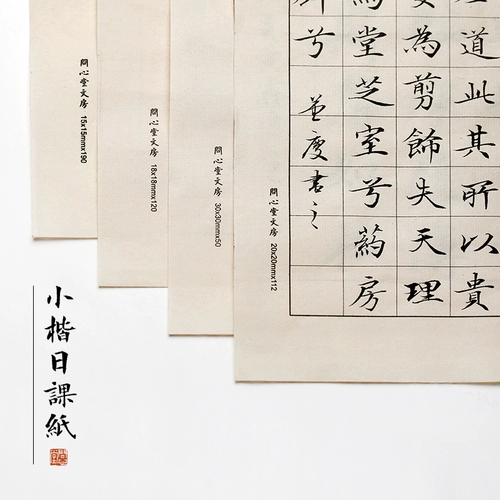 道此其所以貴
為剪飾失天理
為堂芝室兮葯房
兮
書之
問心堂文房 20x20mmx112
問心堂文房 30x30mmx50
問心堂文房 18x18mmx120
問心堂文房 15x15mmx190
小楷日課紙